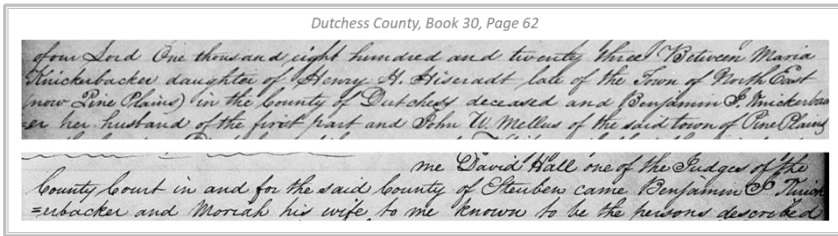 Dutchess County, Book 30, Page 62
of our Lord One thousand, eight hundred and twenty three Between Maria
Knickerbacker daughter of Henry H. Hiseradt late of the Town of North East
(now Pine Plains) in the County of Dutchess deceased and Benjamin P. Knickerbac
=er her husband of the first part and John W. Mellus of the said town of Pine Plains
me David Hall one of the Judges of the
County Court in and for the said County of Steuben came Benjamin P Knick
=erbacker and Moriah his wife to me known to be the persons described